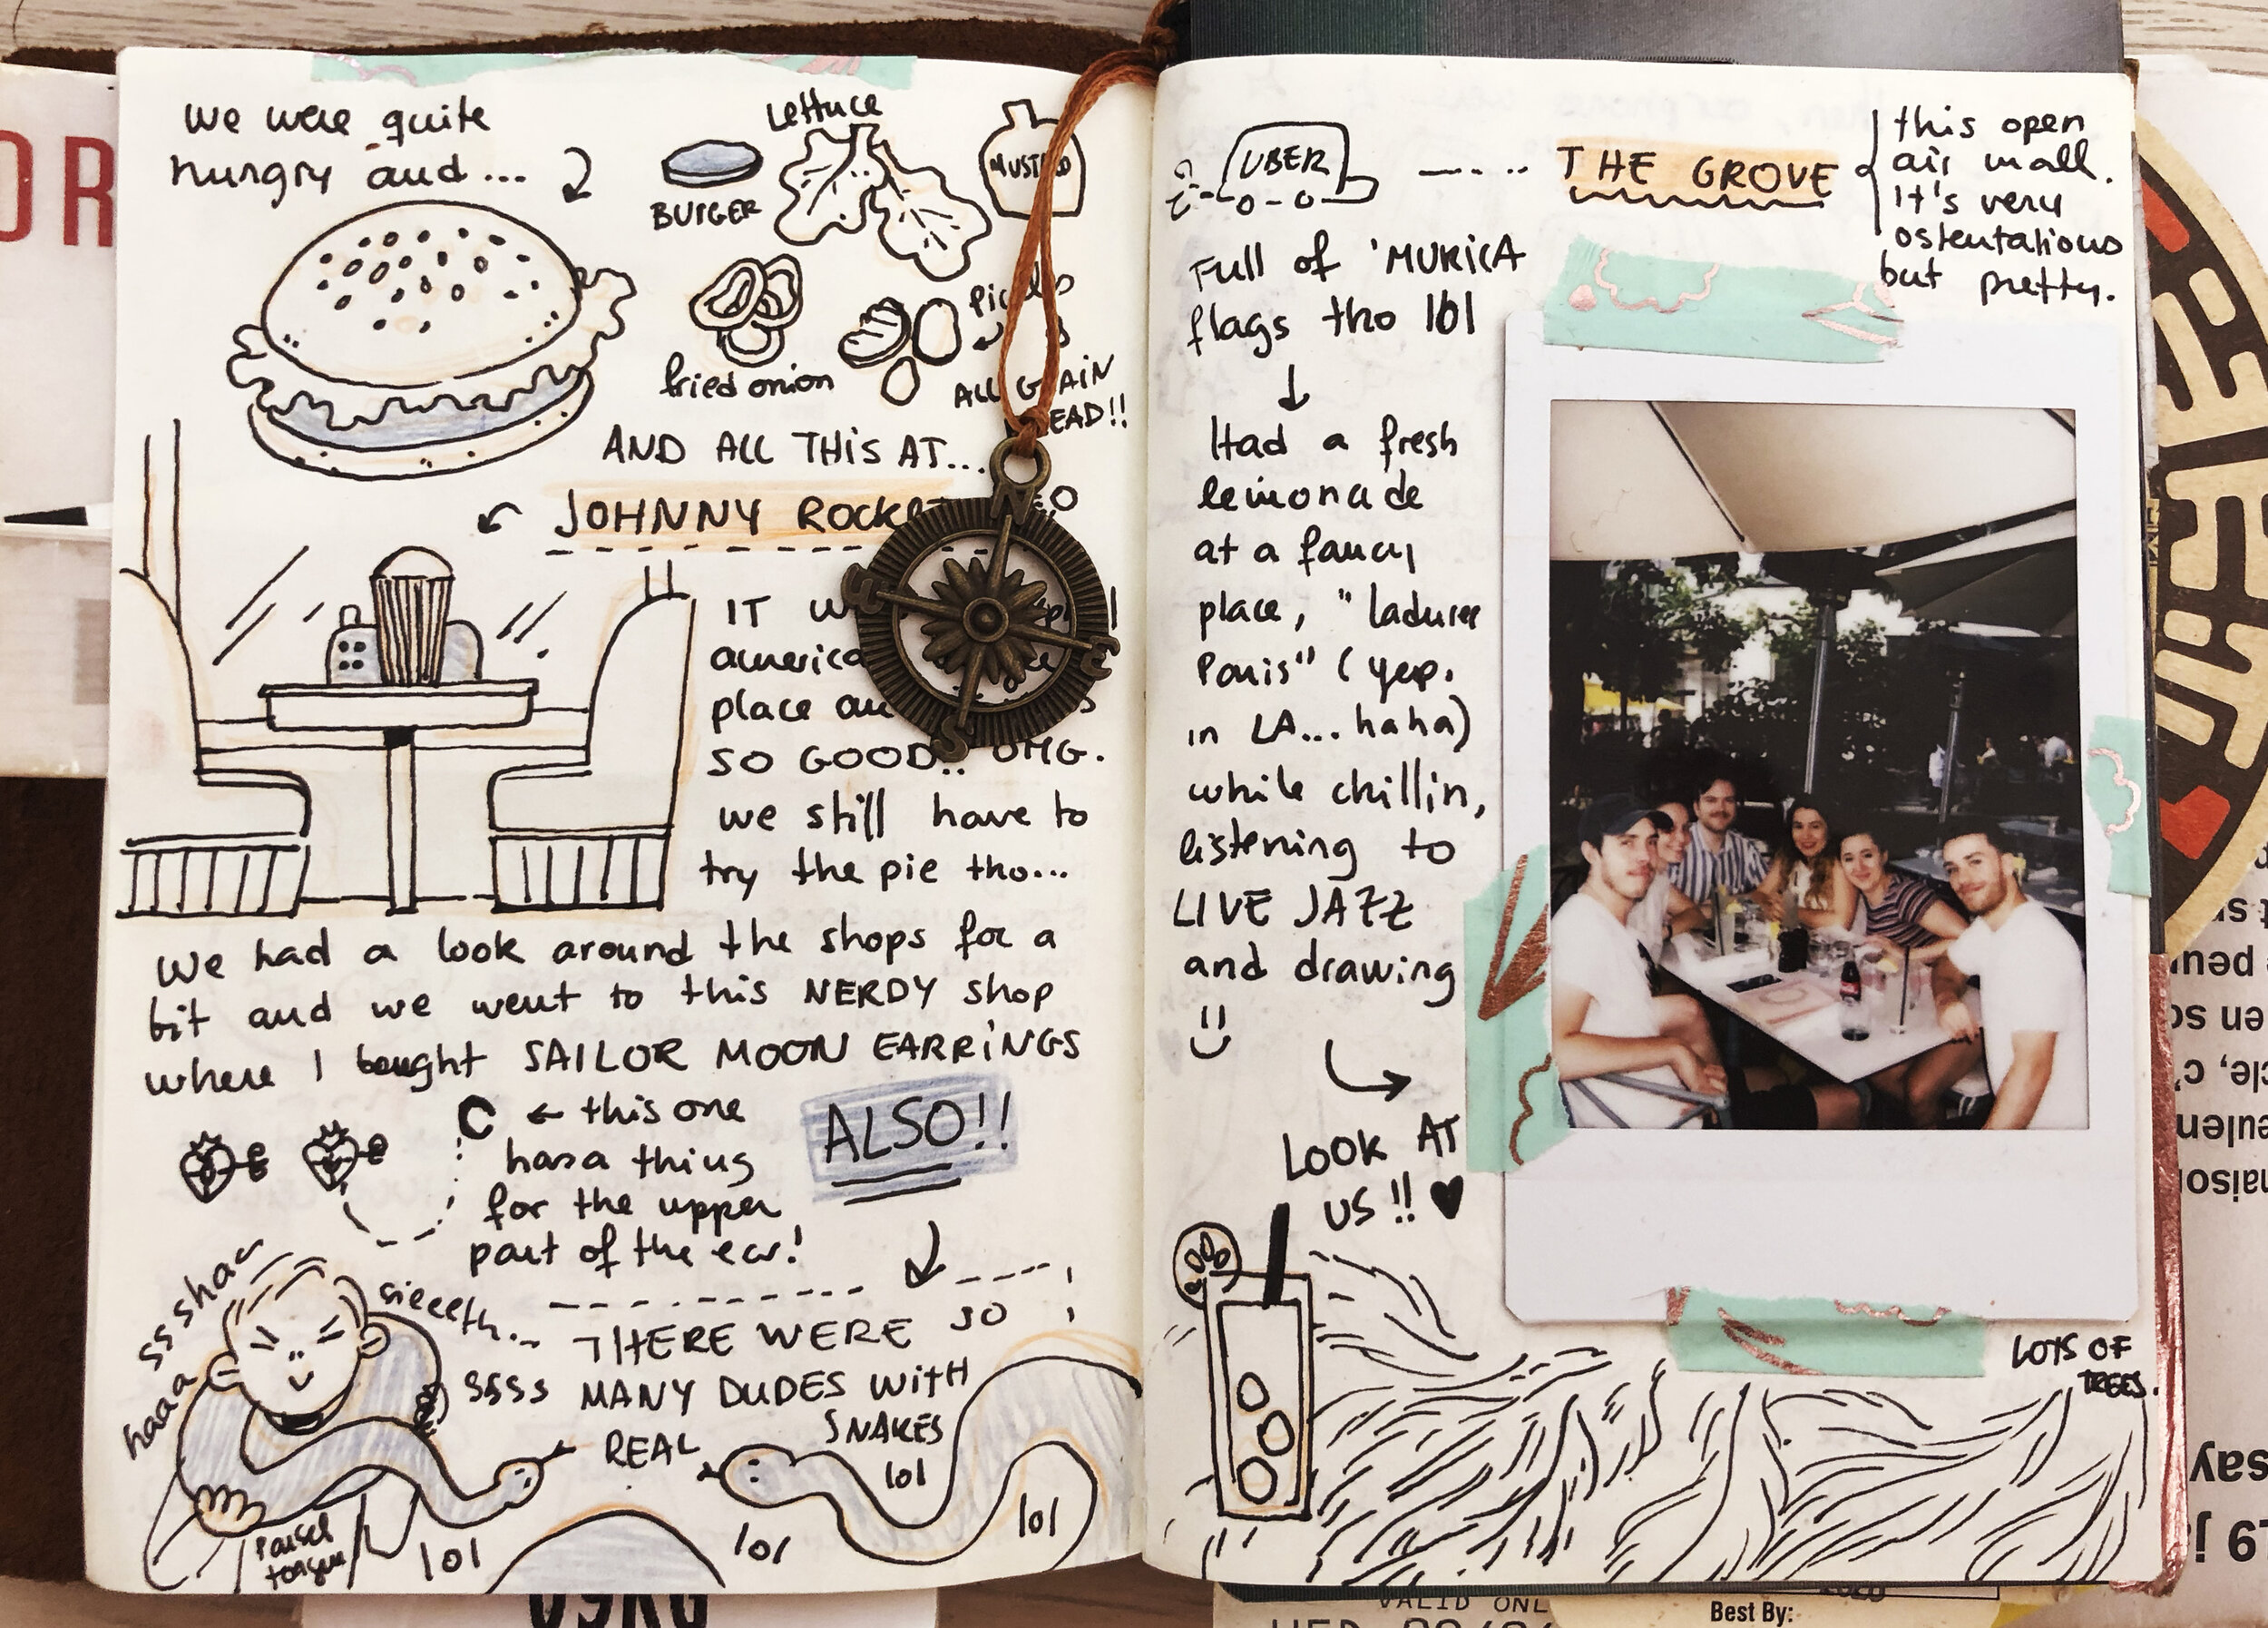 we were quite
hungry and...
BURGER
Lettuce
MUST
fried onion
ALL
AND ALL THIS AT...
JOHNNY
IT
place
SO GOOD.. OMG.
we still have to
try the pie tho...
We had a look around the shops for a
bit and we went to this NERDY shop
where I bought SAILOR MOON EARRINGS
C ← this one
has a thing
for the upper
part of the ear!
ALSO!!
ss shaa
haaa
sieeeth...
THERE WERE SO
ssss MANY DUDES WITH
REAL SNAKES
lol
lol
lol
lol
parsel
tongue
UBER
THE GROVE
this open
air mall.
It's very
ostentatious
but pretty.
Full of 'MURICA
flags tho lol
Had a fresh
lemonade
at a fancy
place, "laduree
Paris" (yep.
in LA... haha)
while chillin,
listening to
LIVE JAZZ
and drawing
LOOK AT
US!! ♥
LOTS OF
TREES.
OR
VALID ONL
Best By: